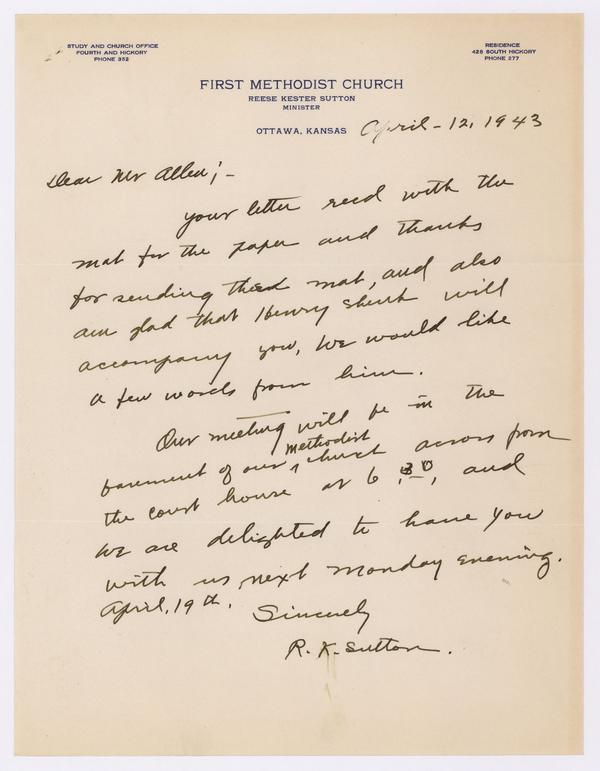 STUDY AND CHURCH OFFICE
FOURTH AND HICKORY
PHONE 352
RESIDENCE
428 SOUTH HICKORY
PHONE 277
FIRST METHODIST CHURCH
REESE KESTER SUTTON
MINISTER
OTTAWA, KANSAS
April - 12, 1943
Dear Mr Allen; -
Your letter recd with the
mat for the paper and thanks
for sending the mat, and also
am glad that Henry Shenk will
accompany you, We would like
a few words from him.
Our meeting will be in the
basement of our Methodist church across from
the court house at 6:30, and
we are delighted to have you
with us next Monday evening.
April, 19th.
Sincerely
R. K. Sutton.